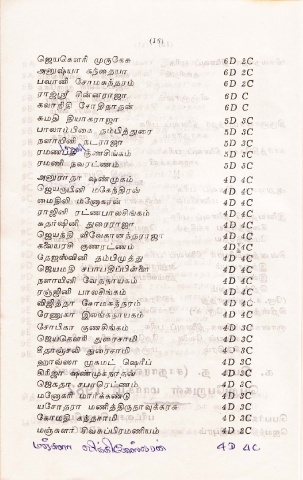 (15)
ஜெயகௌரி முருகேசு 6D 2C
அனுஷ்யா கந்தையா 6D 2C
பவானி சோமசுந்தரம் 6D 2C
ராஜஸ்ரீ சின்னராஜா 6D C
கலாநிதி சோதிநாதன் 6D C
சுமதி தியாகராஜா 5D 3C
பாலாம்பிகை தம்பித்துரை 5D 3C
நளாயினி நடராஜா 5D 3C
ரமணி குணசிங்கம் 5D 3C
ரமணி நவரட்ணம் 5D 3C
அனுராதா ஷண்முகம் 4D 4C
ஜெயரூபினி மகேந்திரன் 4D 4C
மைதிலி மனோகரன் 4D 4C
ராஜினி ரட்ணபாலசிங்கம் 4D 4C
சுதர்ஷினி துரைராஜா 4D 4C
ஜெயந்தி விவேகானந்தராஜா 4D 4C
கலைவரசி குணரட்ணம் 4D 4C
தேஜஸ்வினி தம்பிமுத்து 4D 4C
ஜெயமதி சபாபதிப்பிள்ளை 4D 4C
நளாயினி வேதநாயகம் 4D 4C
ரஞ்ஜினி பாலசிங்கம் 4D 4C
விஜித்தா சோமசுந்தரம் 4D 4C
ரேணுகா இலங்கநாயகம் 4D 4C
சோபிகா குணசிங்கம் 4D 3C
ஜெயகௌரி துரைசாமி 4D 3C
கீதாஞ்சலி துரைசாமி 4D 3C
ஹாவ்வா முகமட் ஷெரீப் 4D 3C
கிரிஜா ஷண்முகநாதன் 4D 3C
ஜெகதா சபாரெட்ணம் 4D 3C
மனோகரி மார்க்கண்டு 4D 3C
யசோதரா மணித்திருநாவுக்கரசு 4D 3C
கோமதி கந்தசாமி 4D 3C
மஞ்சுளா சிவசுப்பிரமணியம் 4D 2C
4D 4C